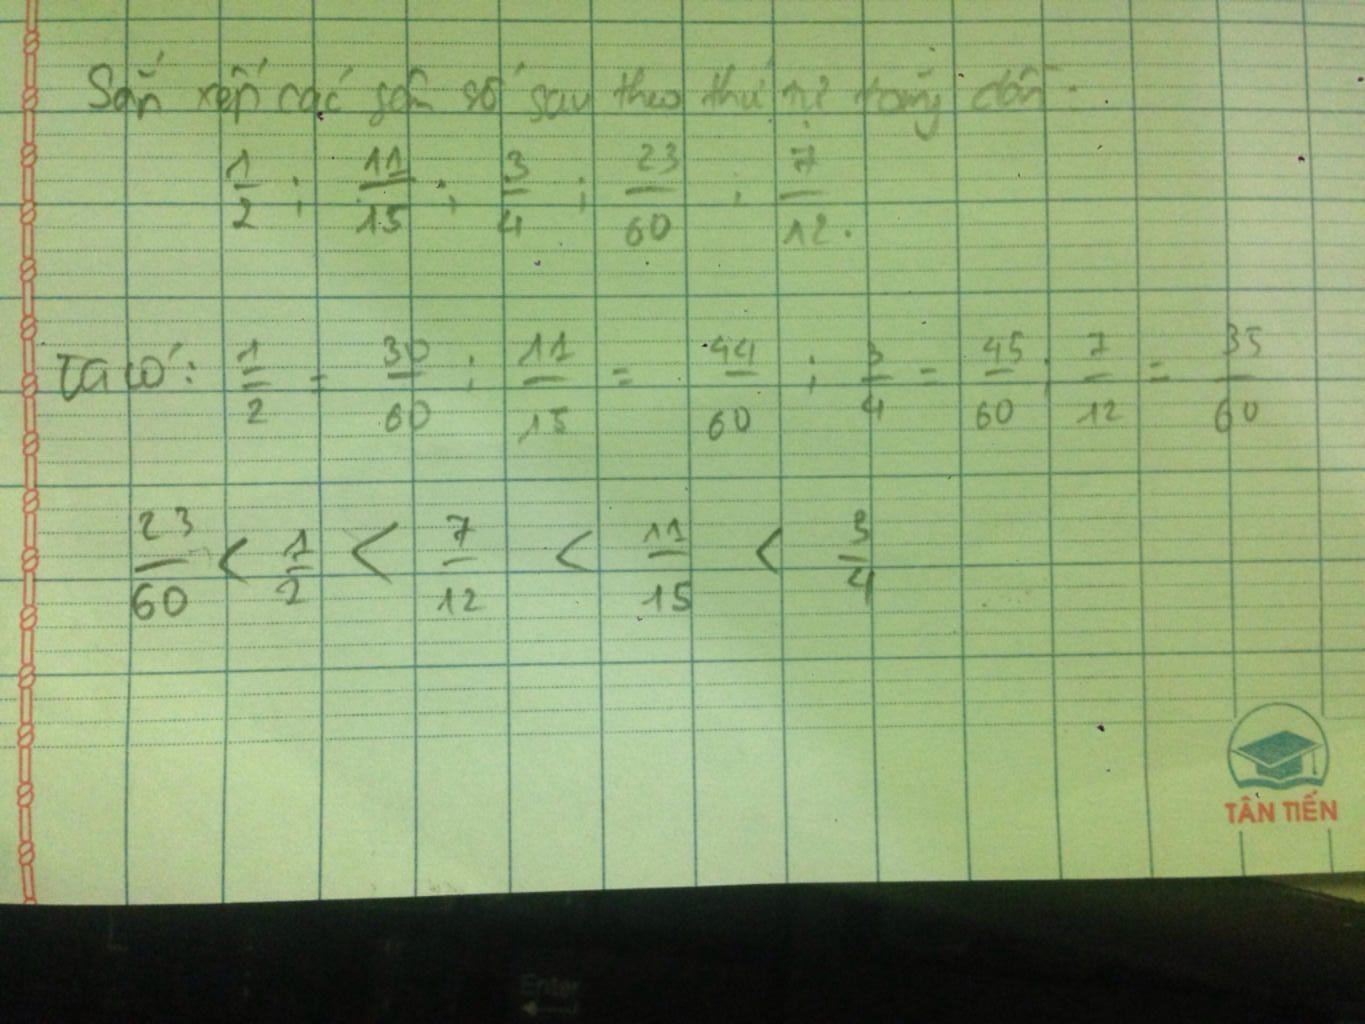 Sắp xếp các số sau theo thứ tự tăng dần:
1/2 ; 11/15 ; 3/4 ; 23/60 ; 7/12.
Ta có: 1/2 = 30/60 ; 11/15 = 44/60 ; 3/4 = 45/60 ; 7/12 = 35/60
23/60 < 1/2 < 7/12 < 11/15 < 3/4
TÂN TIẾN
Enter